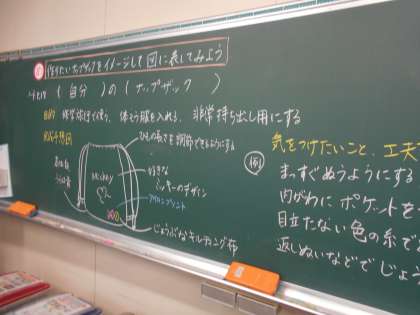 作りたいナップザックをイメージして図に表してみよう
(自分)の(ナップザック)
目的 修学旅行で使う、体そう服を入れる、非常持ち出し用にする
完成予想図
ひもの長さを調節できるようにする
Mickey
好きな
ミッキーのデザイン
アイロンプリント
じょうぶなキルティング布
例
気をつけたいこと、工夫
まっすぐぬうようにする
内がわに ポケットを
目立たない色の糸で
返しぬいなどでじょう